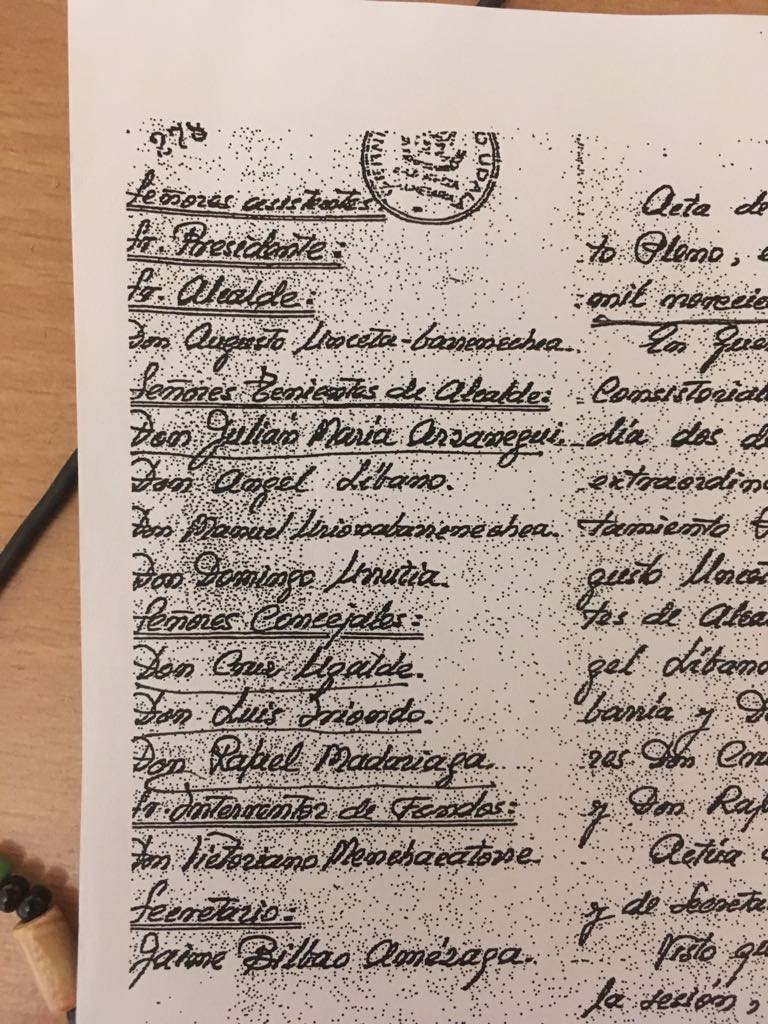 278
D UDAL
Señores asistentes
Sr. Presidente:
Sr. Alcalde:
Don Augusto Unceta-barrenechea.
Señores Tenientes de Alcalde:
Don Julian Maria Arzanegui.
Don Angel Líbano.
Don Manuel
Don Domingo Urrutia.
Señores Concejales:
Don Cruz Ugalde.
Don Luis Iriondo.
Don Rafael Madariaga.
Sr. Interventor de Fondos:
Don Victoriano Menchacatorre
Secretario:
Jaime Bilbao Amézaga.
Acta de
to Pleno, e
mil novecie
En Guer
Consistorial
día dos d
extraordin
tamiento
gusto Uncet
tes de Alca
gel Líbano
barría y D
res Don Cru
y Don Raf
Actúa
y de Secreta
Visto qu
la sesión,